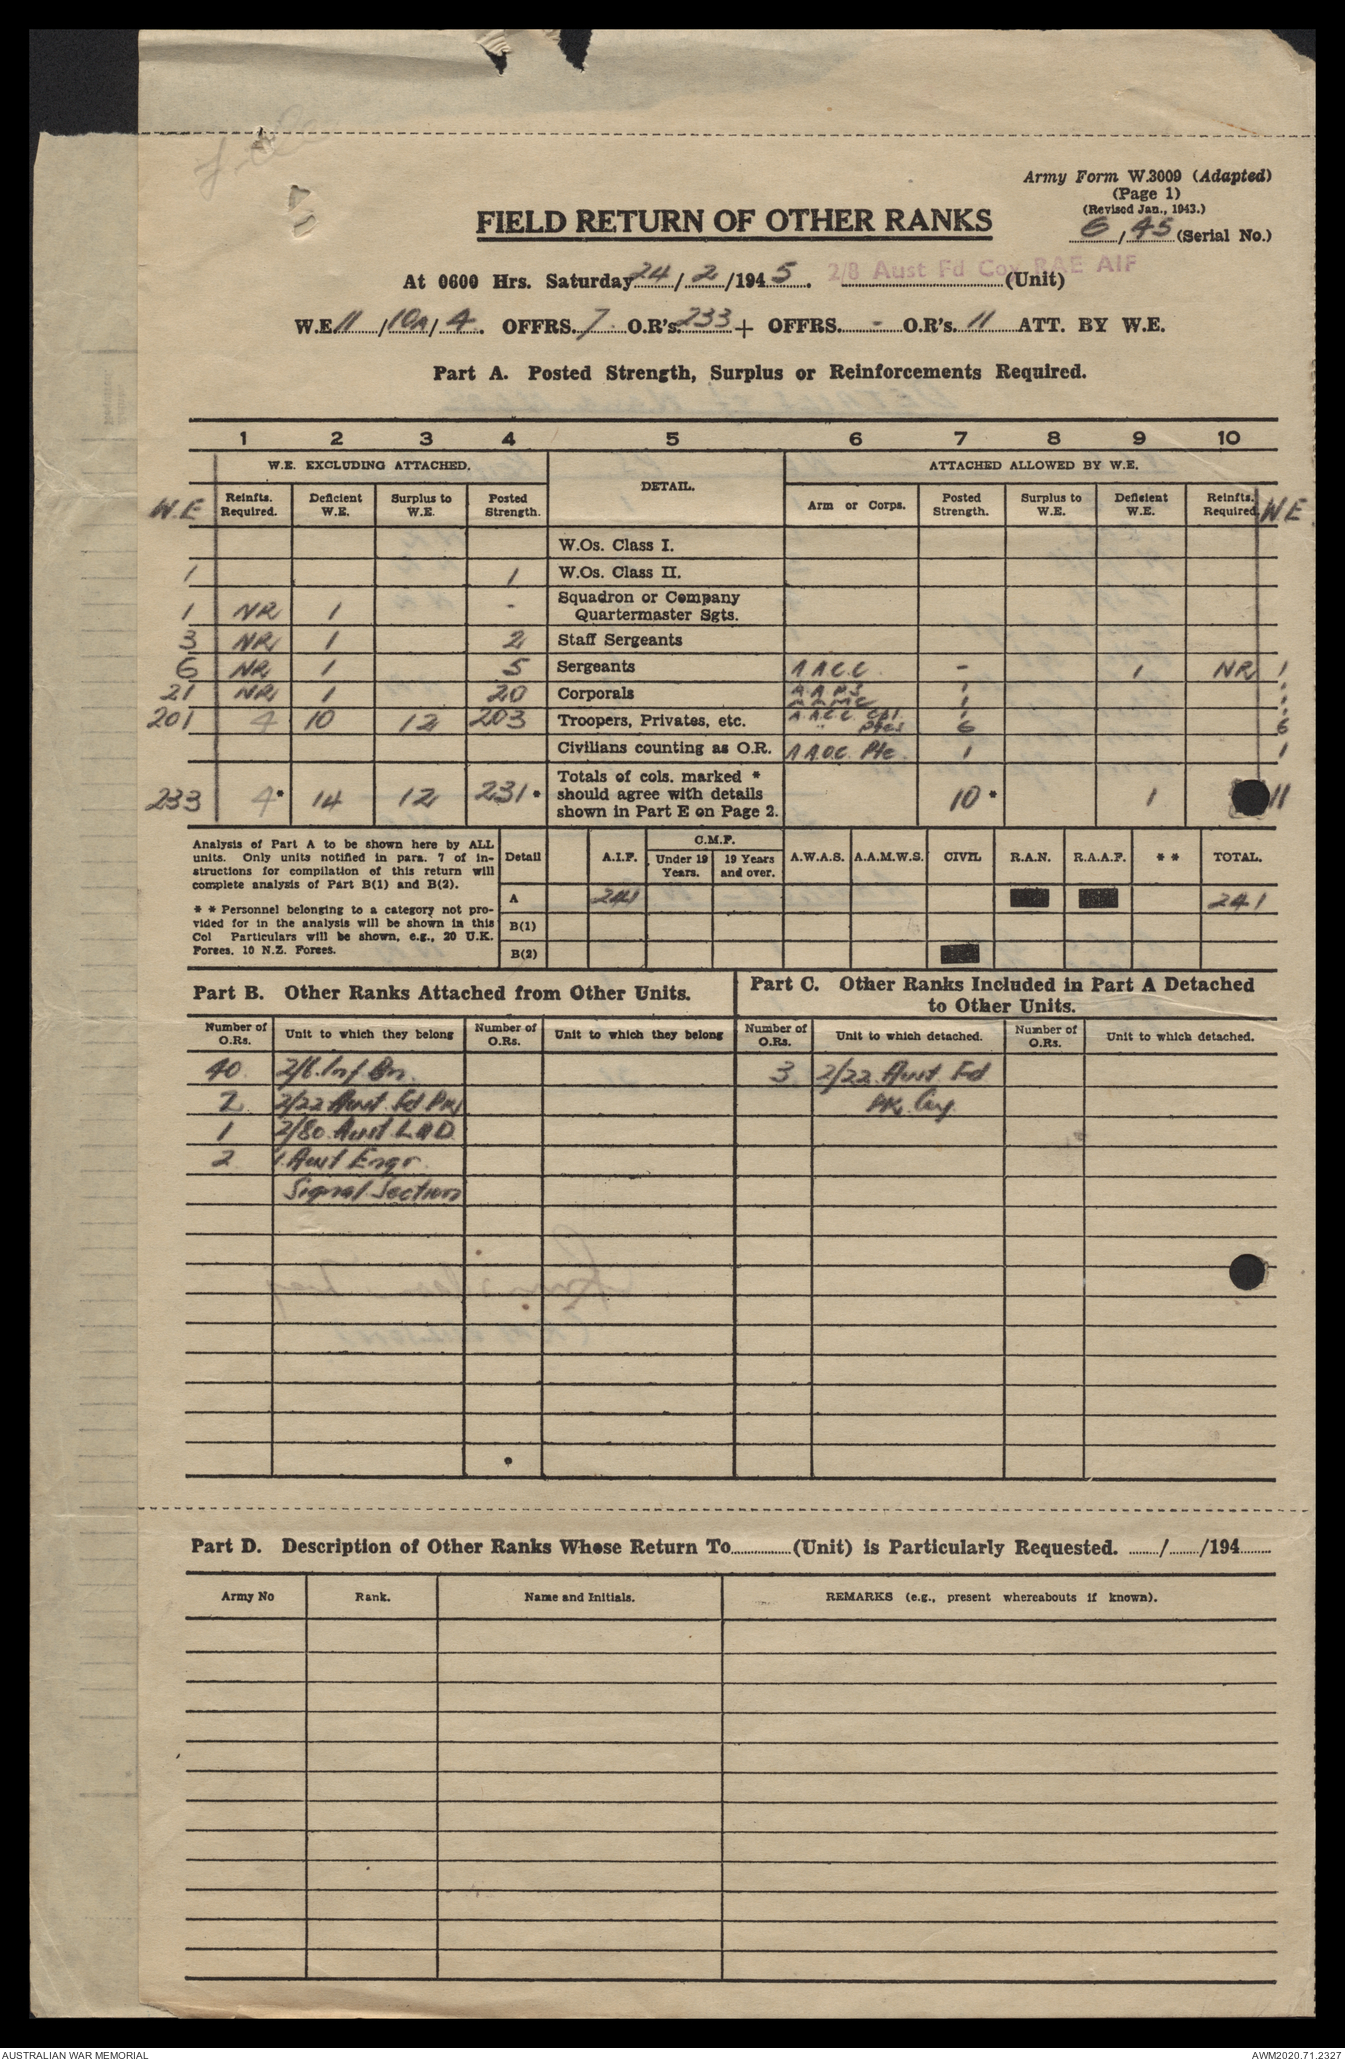 Army Form W.3009 (Adapted)
(Page 1)
(Revised Jan., 1943.)
6/45 (Serial No.)
FIELD RETURN OF OTHER RANKS
At 0600 Hrs. Saturday 24/2/1945. 2/8 Aust Fd Coy RAE AIF (Unit)
W.E 11/10A/4. OFFRS. 7. O.R's. 233 + OFFRS. - O.R's. 11 ATT. BY W.E.
Part A. Posted Strength, Surplus or Reinforcements Required.
1 2 3 4 5 6 7 8 9 10
W.E. EXCLUDING ATTACHED. DETAIL. ATTACHED ALLOWED BY W.E.
W.E Reinfts. Required. Deficient W.E. Surplus to W.E. Posted Strength. Arm or Corps. Posted Strength. Surplus to W.E. Deficient W.E. Reinfts. Required. W E
W.Os. Class I.
1 1 W.Os. Class II.
1 NR 1 - Squadron or Company Quartermaster Sgts.
3 NR 1 2 Staff Sergeants
6 NR 1 5 Sergeants A A C C - 1 NR 1
21 NR 1 20 Corporals A A P S 1 1
A A M C 1 1
201 4 10 12 203 Troopers, Privates, etc. A A C C Cpl 1
Ptes 6 6
Civilians counting as O.R. A A O C Pte 1 1
233 4* 14 12 231* Totals of cols. marked * should agree with details shown in Part E on Page 2. 10* 1 11
Analysis of Part A to be shown here by ALL
units. Only units notified in para. 7 of in-
structions for compilation of this return will
complete analysis of Part B(1) and B(2).
* * Personnel belonging to a category not pro-
vided for in the analysis will be shown in this
Col Particulars will be shown, e.g., 20 U.K.
Forses. 10 N.Z. Forses.
Detail A.I.F. C.M.F. Under 19 Years. 19 Years and over. A.W.A.S. A.A.M.W.S. CIVIL R.A.N. R.A.A.F. * * TOTAL.
A 241 241
B(1)
B(2)
Part B. Other Ranks Attached from Other Units.
Part C. Other Ranks Included in Part A Detached
to Other Units.
Number of O.Rs. Unit to which they belong Number of O.Rs. Unit to which they belong Number of O.Rs. Unit to which detached. Number of O.Rs. Unit to which detached.
40 2/6 Inf Bn. 3 2/22 Aust Fd
2 2/22 Aust Fd Pk Pk Coy
1 2/80 Aust LAD
2 1 Aust Engr
Signal Section
Part D. Description of Other Ranks Whose Return To (Unit) is Particularly Requested. / /194
Army No Rank. Name and Initials. REMARKS (e.g., present whereabouts if known).
AUSTRALIAN WAR MEMORIAL
AWM2020.71.2327